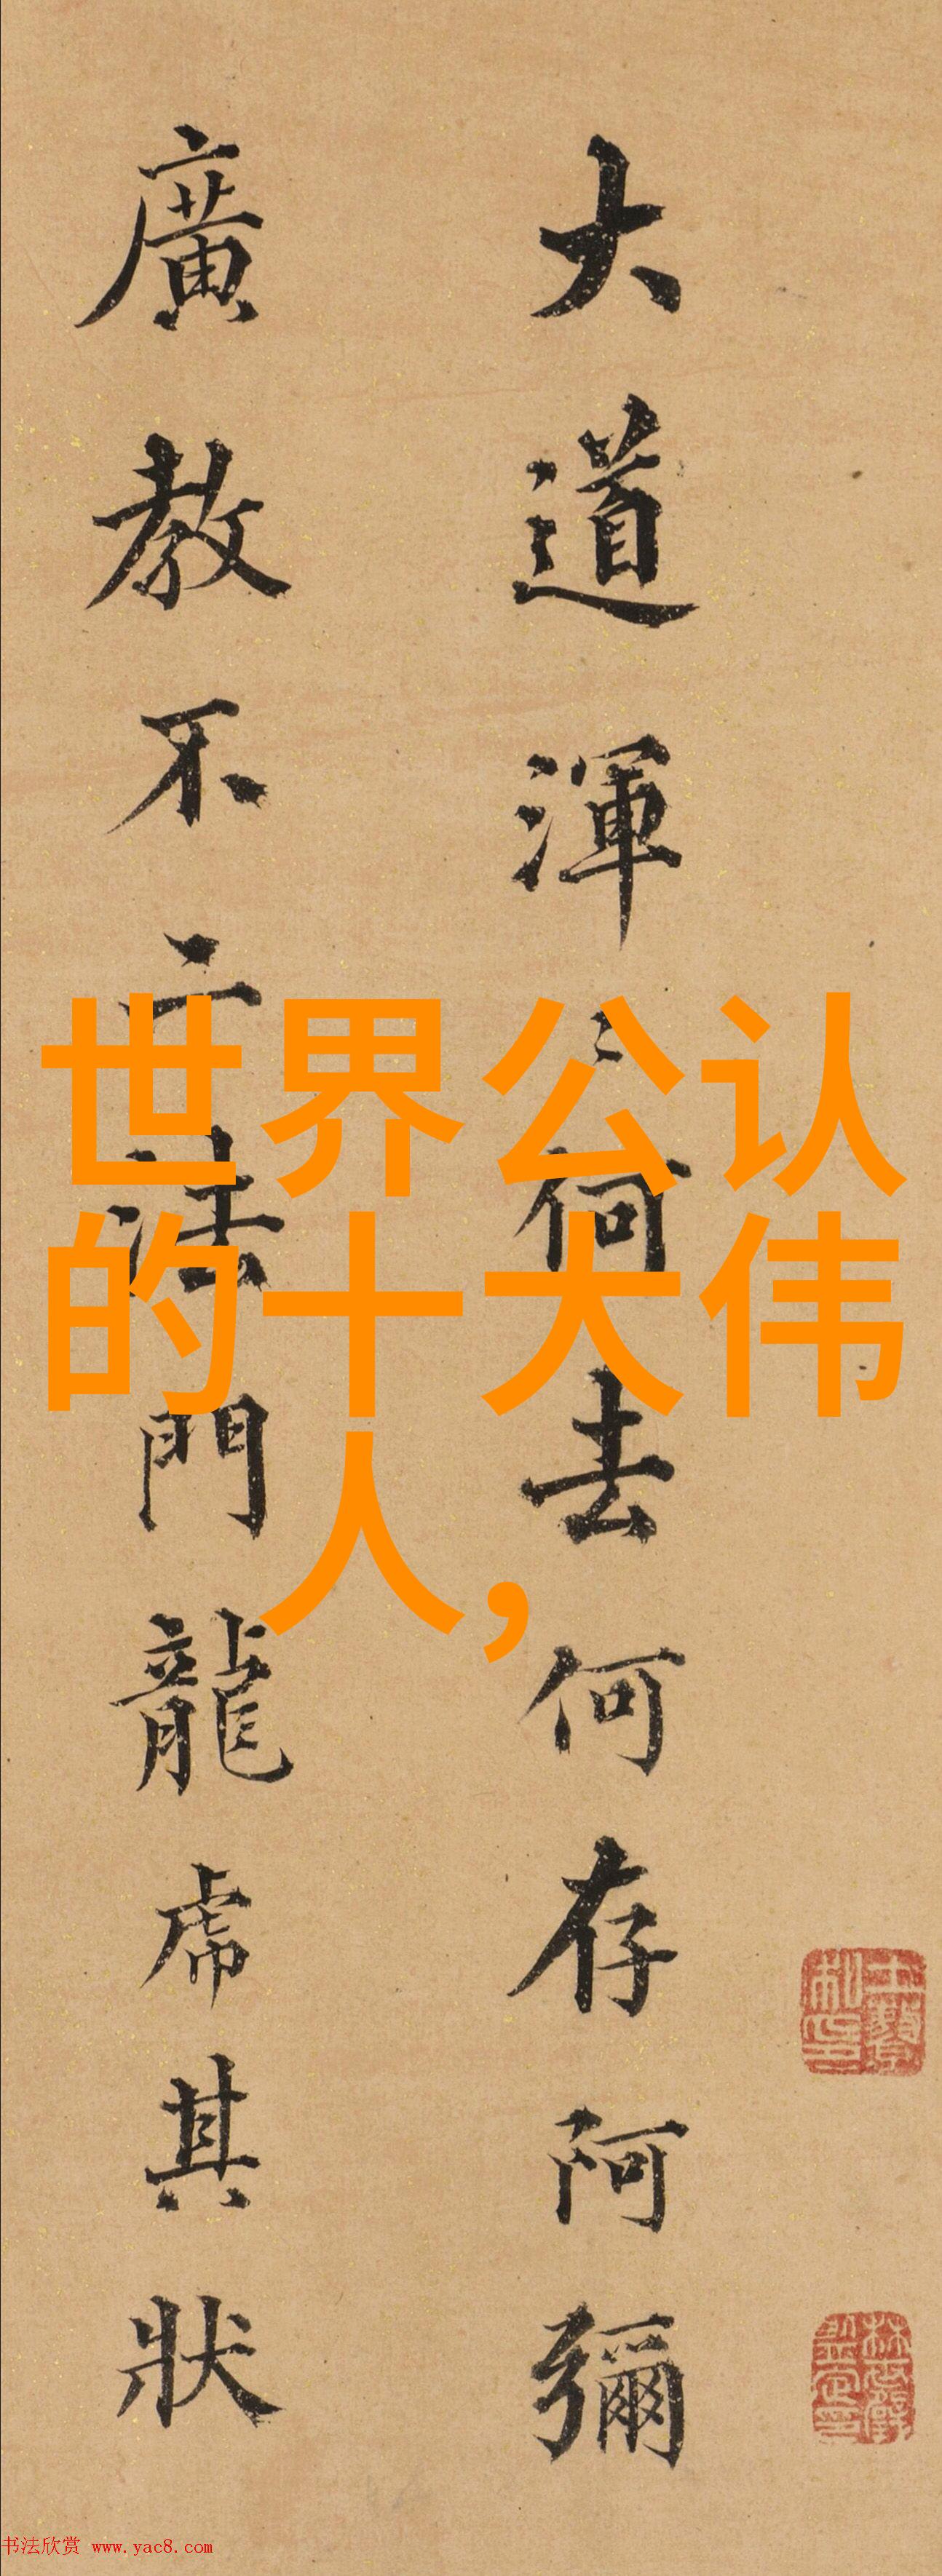 大道渾〻何去何存阿彌
廣教不二法門龍虎其狀
世界公认
的十大伟
人,
书法欣赏 www.yac8.com